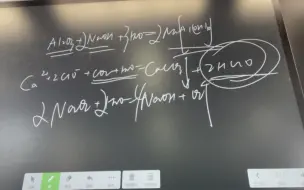 Al₂O₃+2NaOH+3H₂O=2Na[Al(OH)₄]
Ca²⁺+2ClO⁻+CO₂+H₂O=CaCO₃↓+2HClO
2Na₂O₂+2H₂O=4NaOH+O₂↑